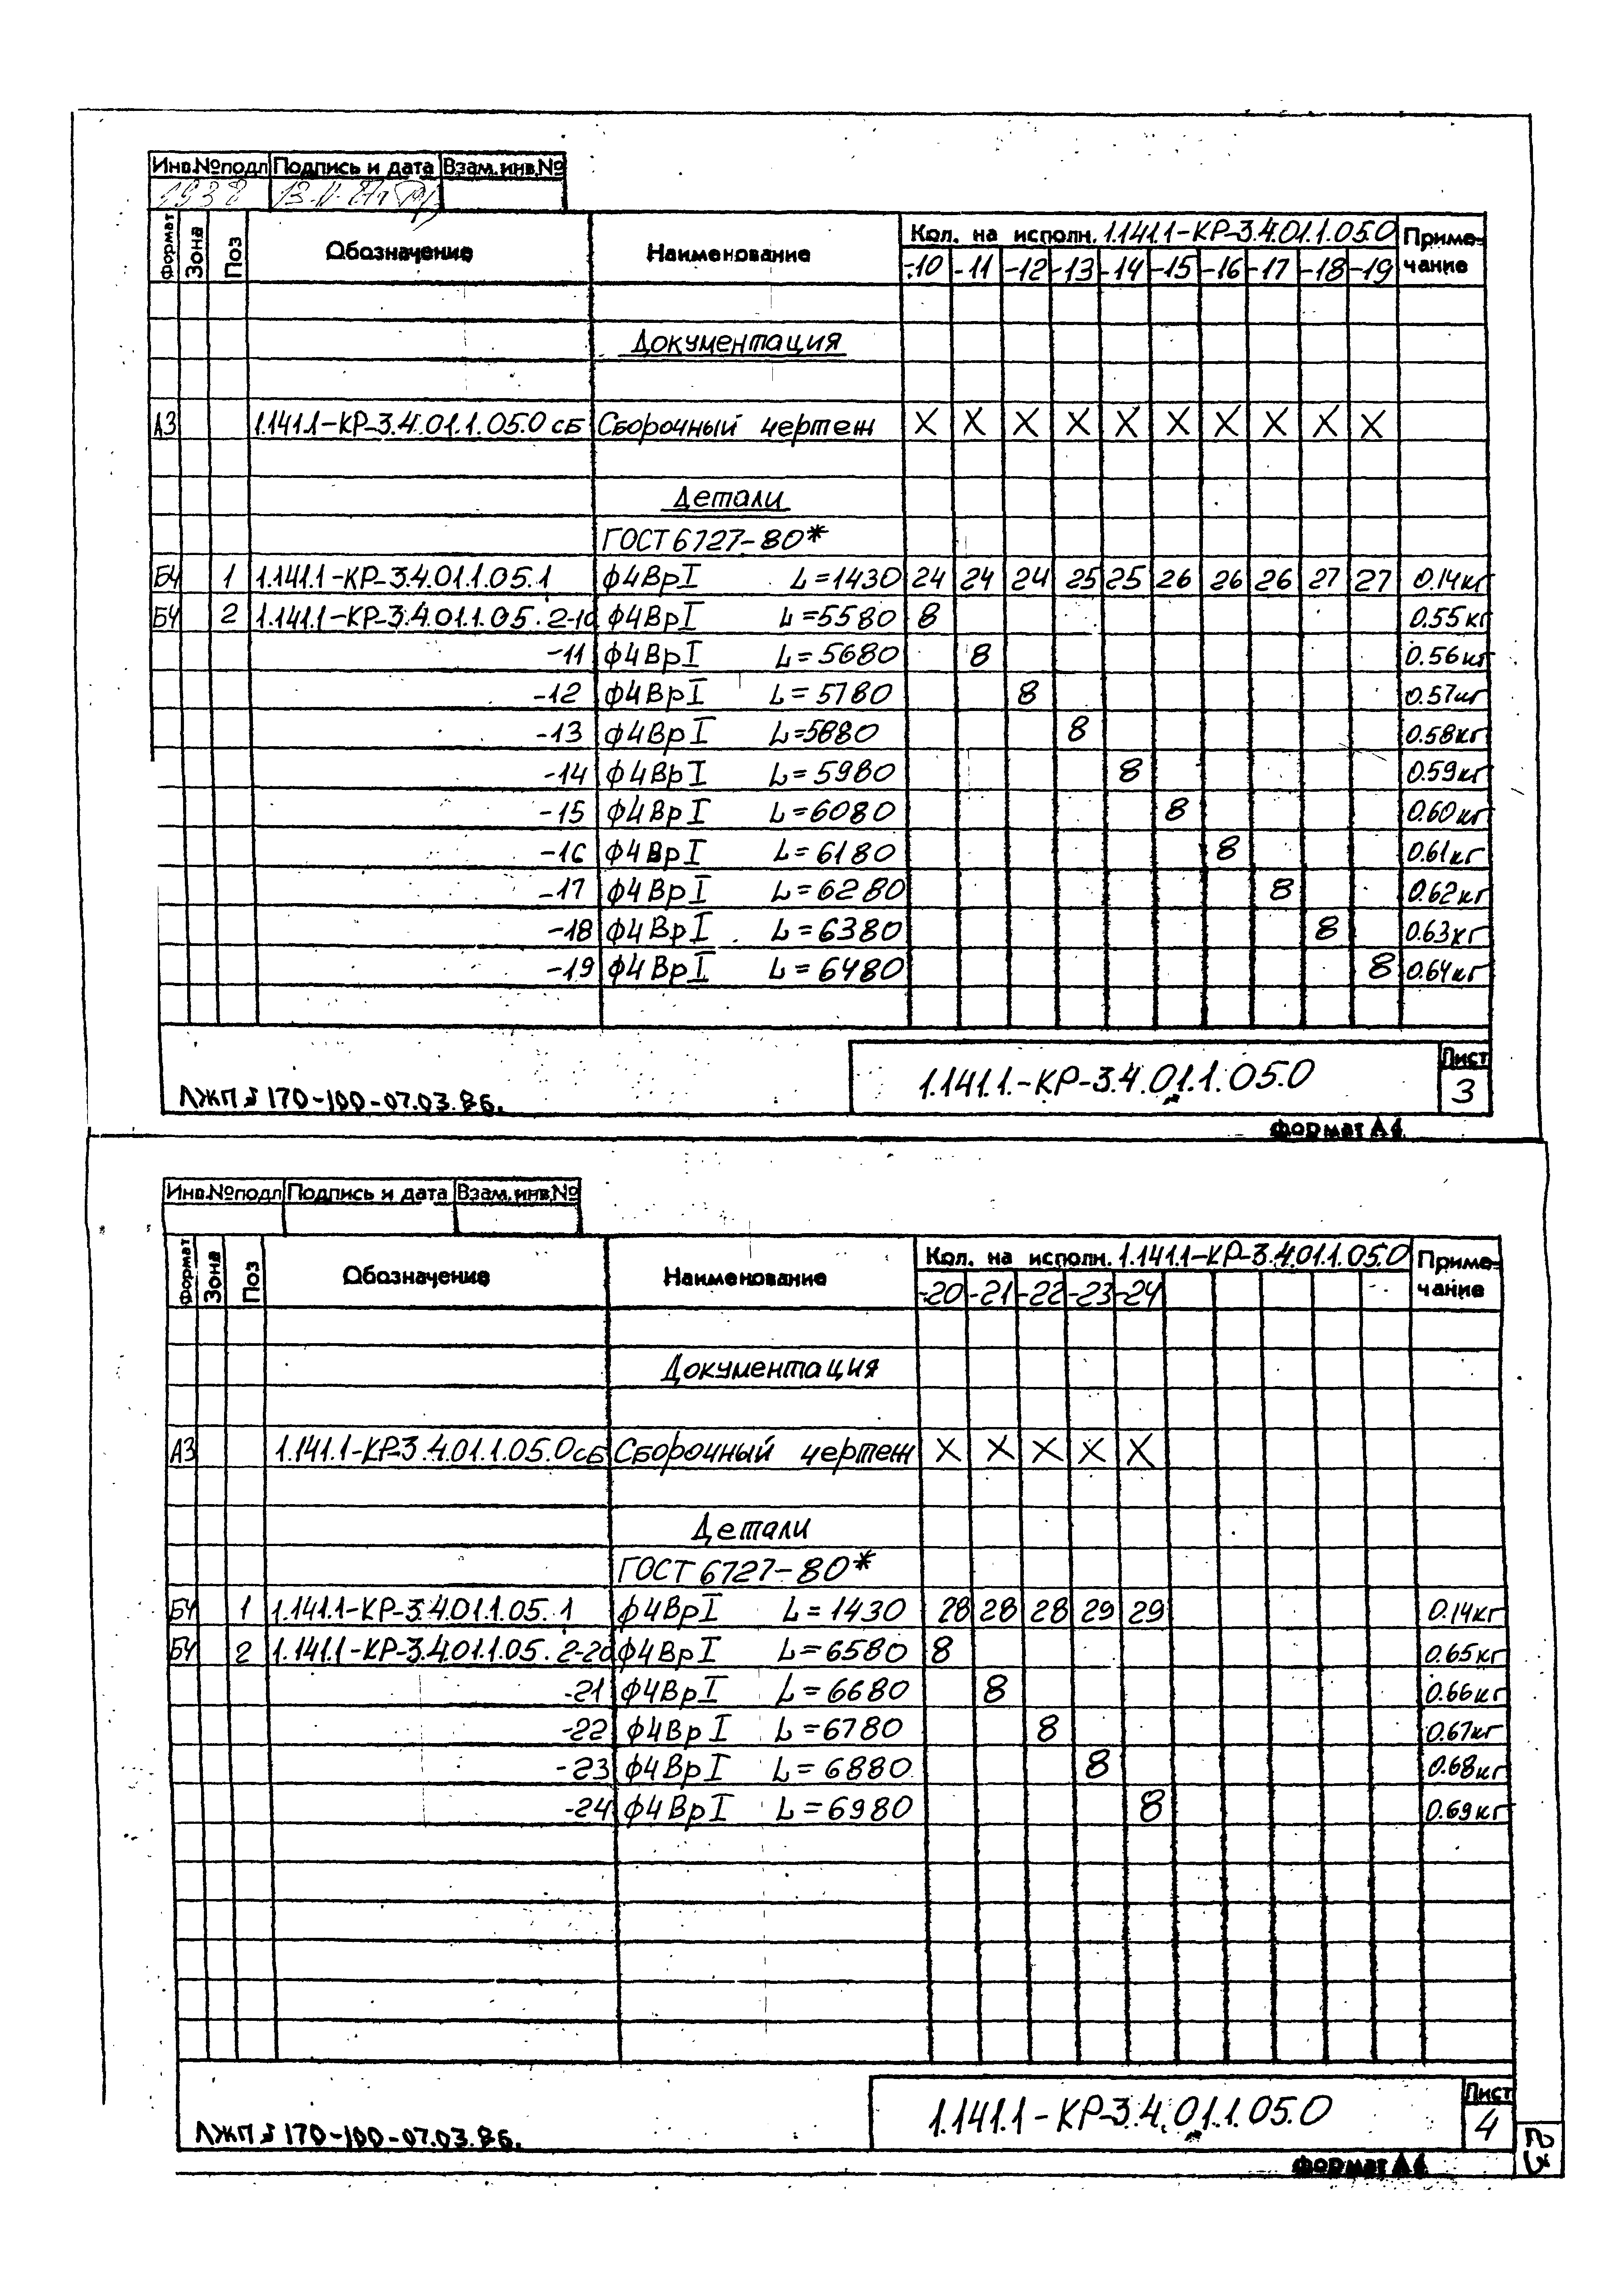 Инв.№подл Подпись и дата Взам.инв.№
1938
Формат Зона Поз Обозначение Наименование Кол. на исполн. 1.141.1-КР-3.4.01.1.05.0 Приме-
-10 -11 -12 -13 -14 -15 -16 -17 -18 -19 чание
Документация
А3 1.141.1-КР-3.4.01.1.05.0 СБ Сборочный чертеж X X X X X X X X X X
Детали
ГОСТ 6727-80*
БЧ 1 1.141.1-КР-3.4.01.1.05.1 ф4ВрI L=1430 24 24 24 25 25 26 26 26 27 27 0.14кг
БЧ 2 1.141.1-КР-3.4.01.1.05.2-10 ф4ВрI L=5580 8 0.55кг
-11 ф4ВрI L=5680 8 0.56кг
-12 ф4ВрI L=5780 8 0.57кг
-13 ф4ВрI L=5880 8 0.58кг
-14 ф4ВрI L=5980 8 0.59кг
-15 ф4ВрI L=6080 8 0.60кг
-16 ф4ВрI L=6180 8 0.61кг
-17 ф4ВрI L=6280 8 0.62кг
-18 ф4ВрI L=6380 8 0.63кг
-19 ф4ВрI L=6480 8 0.64кг
1.141.1-КР-3.4.01.1.05.0 Лист
ЛЖПЗ 170-100-07.03.86. 3
Формат А4
Инв.№подл Подпись и дата Взам.инв.№
Формат Зона Поз Обозначение Наименование Кол. на исполн. 1.141.1-КР-3.4.01.1.05.0 Приме-
-20 -21 -22 -23 -24 чание
Документация
А3 1.141.1-КР-3.4.01.1.05.0 СБ Сборочный чертеж X X X X X
Детали
ГОСТ 6727-80*
БЧ 1 1.141.1-КР-3.4.01.1.05.1 ф4ВрI L=1430 28 28 28 29 29 0.14кг
БЧ 2 1.141.1-КР-3.4.01.1.05.2-20 ф4ВрI L=6580 8 0.65кг
-21 ф4ВрI L=6680 8 0.66кг
-22 ф4ВрI L=6780 8 0.67кг
-23 ф4ВрI L=6880 8 0.68кг
-24 ф4ВрI L=6980 8 0.69кг
1.141.1-КР-3.4.01.1.05.0 Лист
ЛЖПЗ 170-100-07.03.86. 4
Формат А4